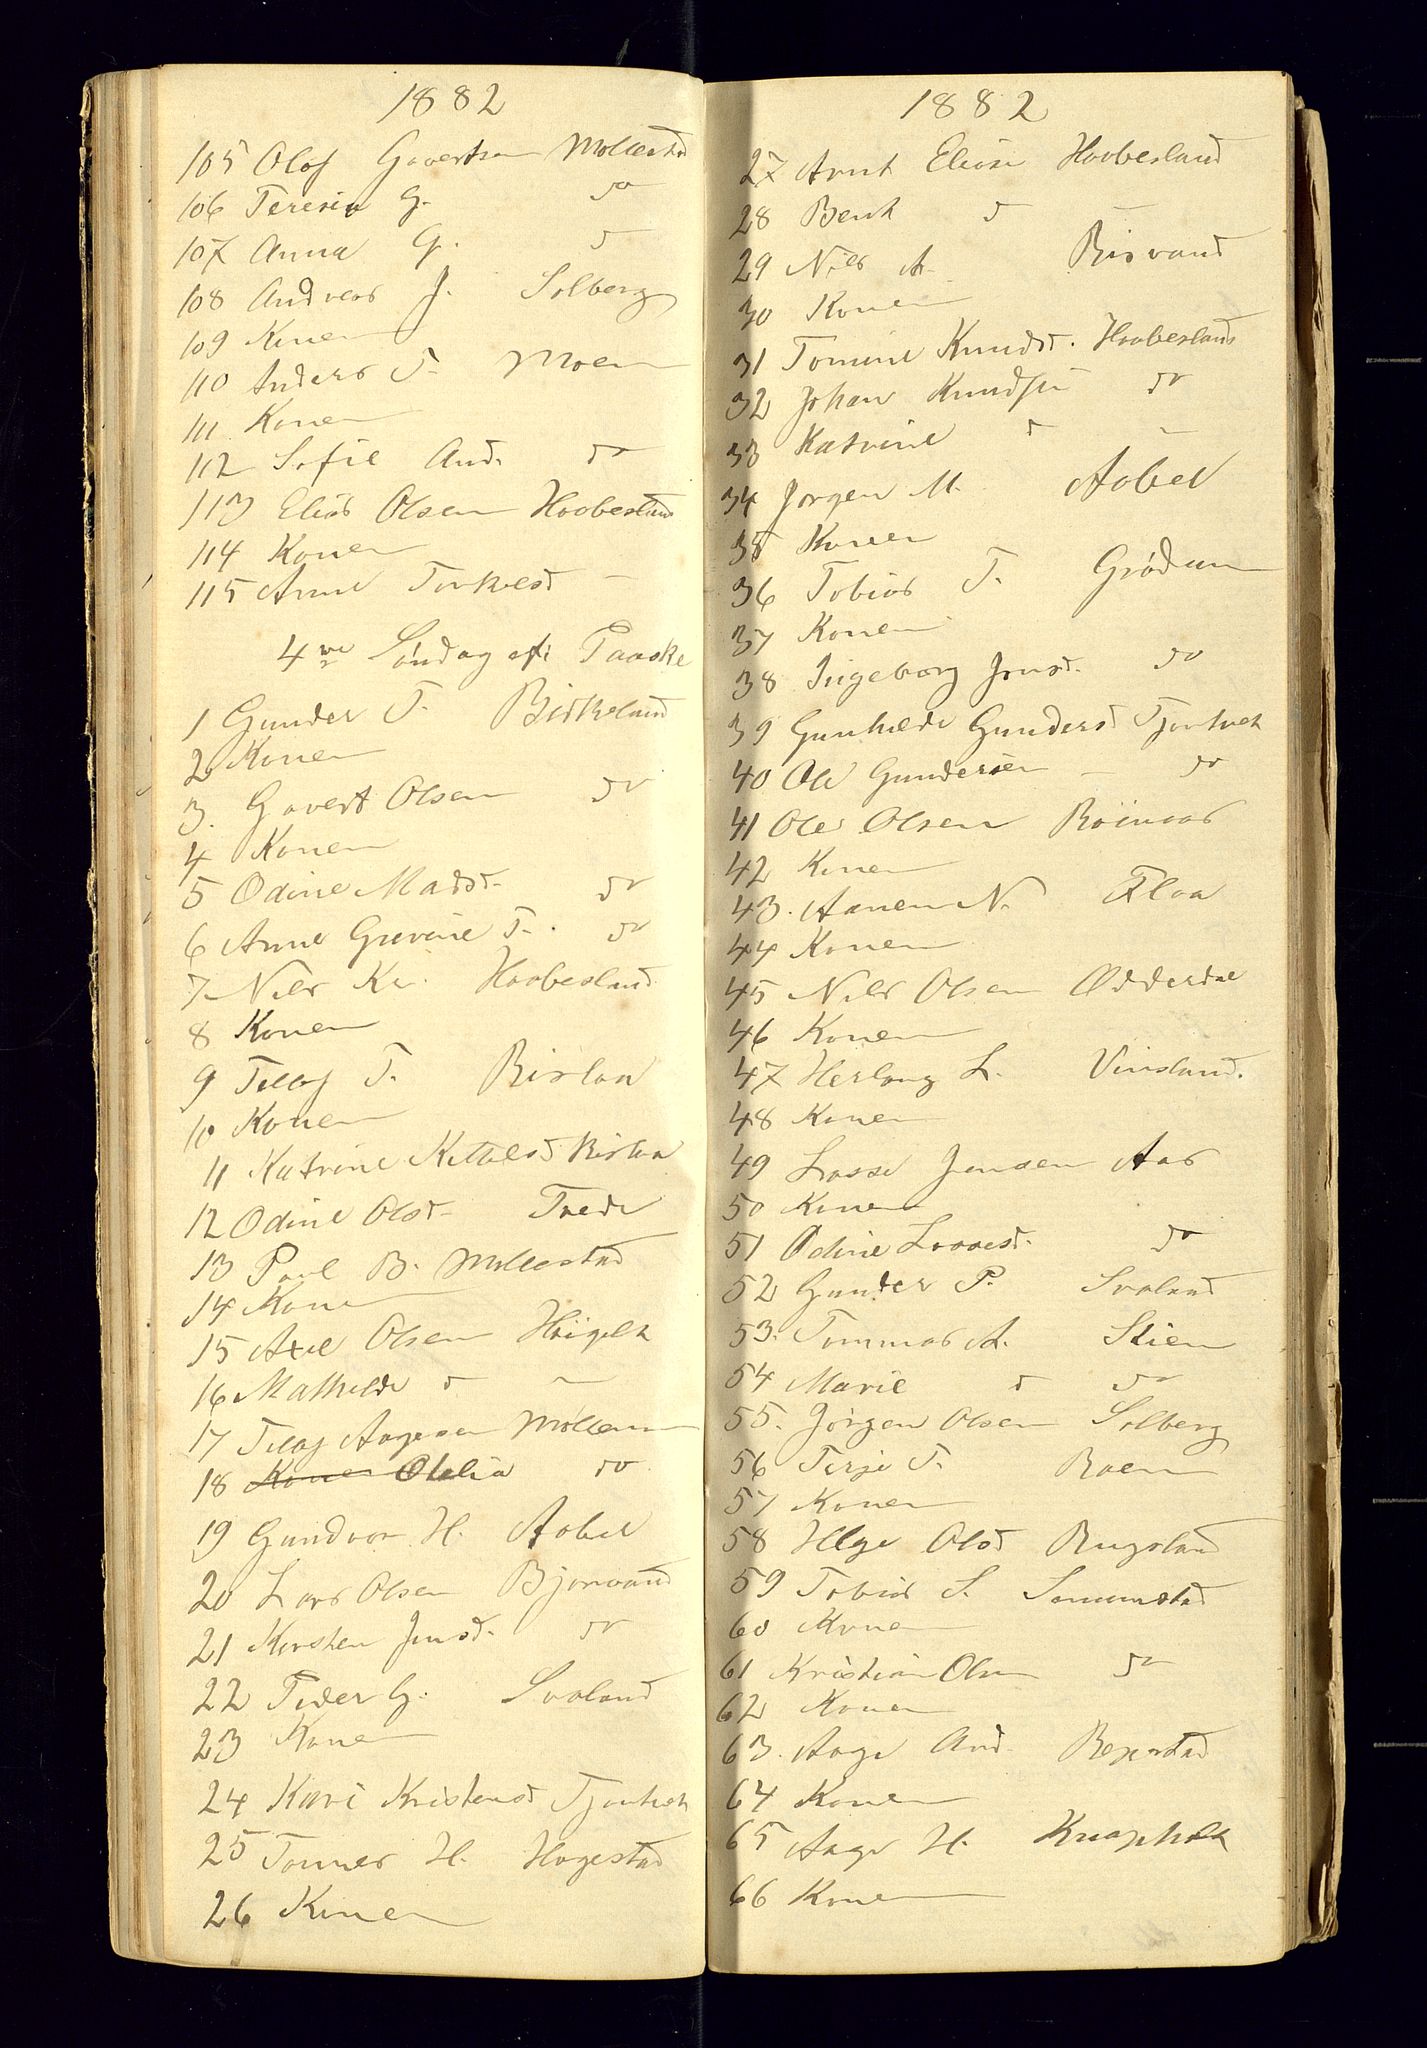 1882
105 Olaf Govertsen Mollestad
106 Teresia G. do
107 Anna G. d
108 Andreas J. Solberg
109 Konen
110 Anders T. Moen
111 Konen
112 Sofie And. do
113 Elias Olsen Haabesland
114 Konen
115 Anne Torkelsd –
4de Søndag eft Paaske
1 Gunder T. Birkeland
2 Konen
3. Govert Olsen do
4 Konen
5 Odine Madsd. do
6 Anne Grevine T. do
7 Nils Kr. Haabesland
8 Konen
9 Tellof T. Rislaa
10 Konen
11 Katrine Kittelsd Rislaa
12 Odine Olsd. Trede
13 Paul B. Mollestad
14 Konen
15 Axel Olsen Høigilt
16 Mathilde d –
17 Tellof Aagesen Møllem
18 Konen Otelia do
19 Gundvor H. Aabel
20 Lars Olsen Bjorvand
21 Kirsten Jensd. do
22 Peder G. Svaland
23 Konen
24 Kari Kristensd Tjontvet
25 Tomes H. Hagestad
26 Konen
1882
27 Arnt Eliasen Haabesland
28 Bent d –
29 Nils A. Risvand
30 Konen
31 Tomine Knudsd. Haabesland
32 Johan Knudsen do
33 Katrine d –
34 Jorgen M. Aabel
35 Konen
36 Tobias T. Grødum
37 Konen
38 Ingeborg Jensd. do
39 Gunhilde Gundersd Tjontvet
40 Ole Gundersen – do
41 Ole Olsen Røinaas
42 Konen
43. Aanen N. Flaa
44 Konen
45 Nils Olsen Odderdal
46 Konen
47 Herlaug L. Vinsland.
48 Konen
49 Lasse Jensen Aas
50 Konen
51 Odine Lassesd. do
52 Gunder P. Svaland
53. Tommas A. Stien
54 Marie d do
55. Jørgen Olsen Solberg
56 Terje T. Roen
57 Konen
58 Helge Olsd Rugsland
59 Tobias S. Senumstad
60 Konen
61 Kristian Olsen do
62 Konen
63. Aage And. Repstad
64 Konen
65 Aage H. Knapholt
66 Konen